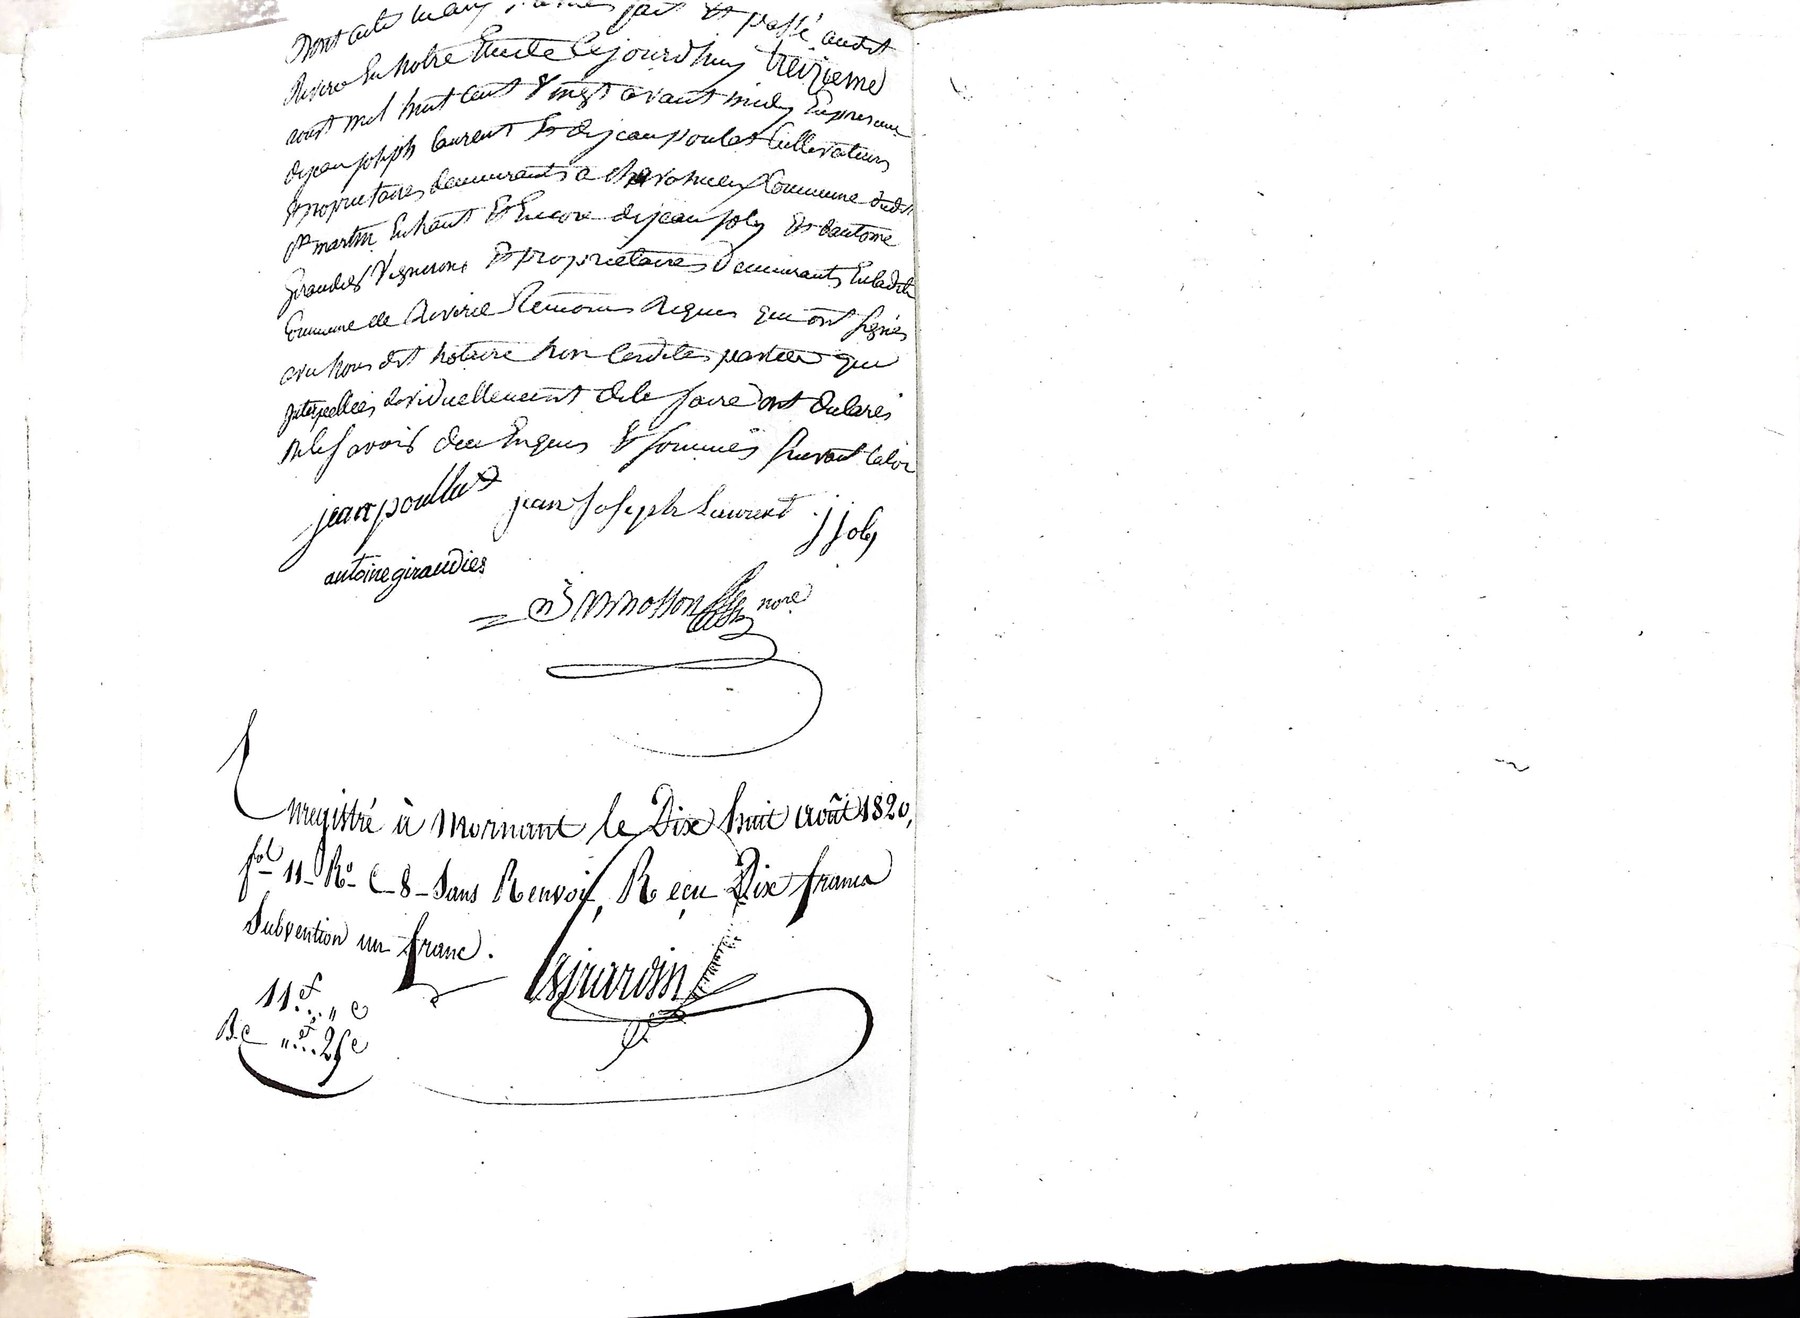 Dont acte lu aux mêmes fait et passé audit
Riverie En notre Etude Cejourd'huy treizieme
aout mil huit cent Vingt avant midy En presence
de jean joseph laurent Et de jean poulat Cultivateurs
Et proprietaires demeurants a Commune dudit
st martin En haut Et Encore de jean joly Et dantoine
giraudies Vignerons Et proprietaires Demeurants En ladite
Commune de Riverie temoins Requis qui ont signés
avec nous dit notaire non lesdites parties qui
Interpellées de le faire ont declarés
ne le savoir de ce Enquis Et sommés suivant la loi
jean poullat jean Joseph Laurent j joly
antoine giraudies
nore
Enregistré à Mornant le Dix huit août 1820,
fol 11 Ro C 8 Sans Renvoi, Reçu Dix francs
Subvention un franc.
Girardin
11f.. " c
B.c "f.. 25c